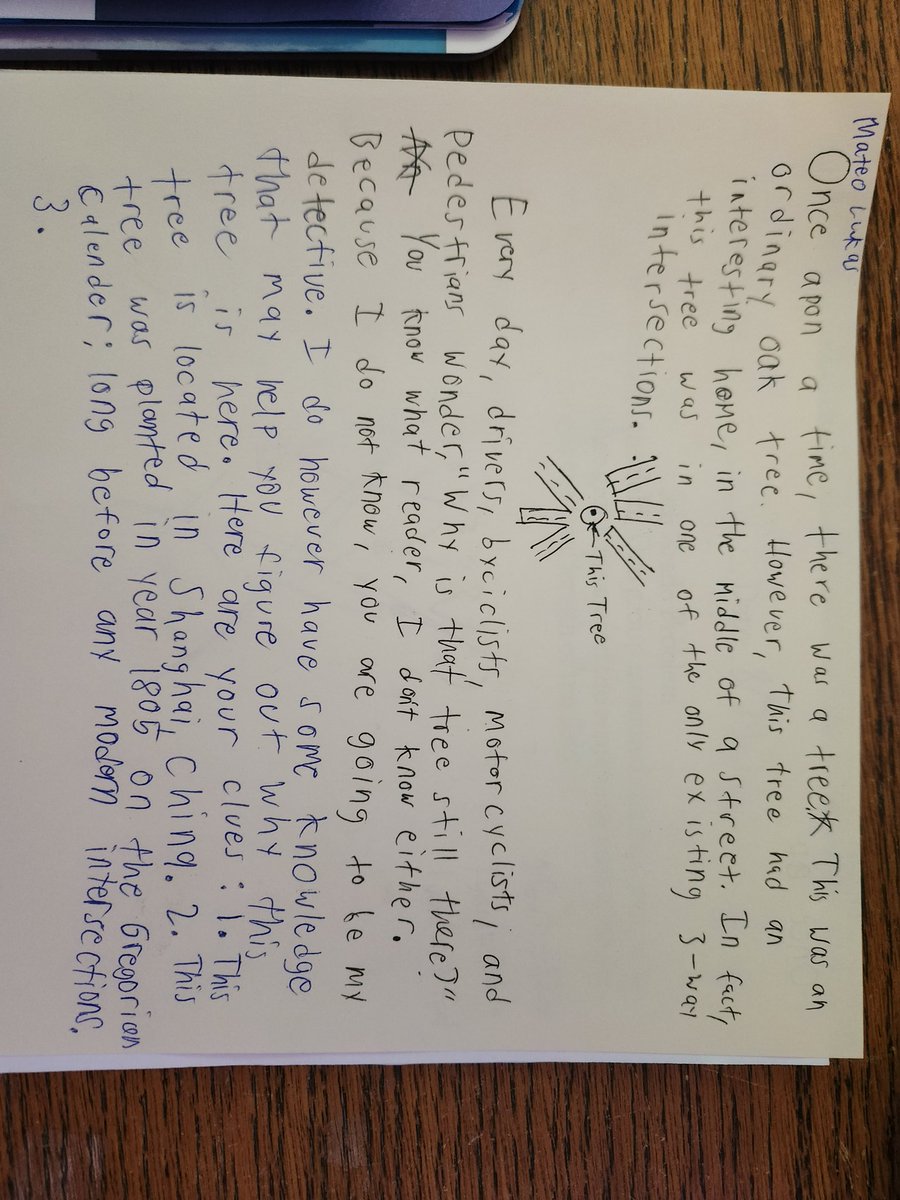 Mateo Lukas
Once apon a time, there was a tree. This was an
ordinary oak tree. However, this tree had an
interesting home, in the middle of a street. In fact,
this tree was in one of the only existing 3-way
intersections.
This Tree
Every day, drivers, byciclists, motorcyclists, and
pedestrians wonder, "Why is that tree still there?"
You know what reader, I don't know either.
Because I do not know, you are going to be my
detective. I do however have some knowledge
that may help you figure out why this
tree is here. Here are your clues: 1. This
tree is located in Shanghai, China. 2. This
tree was planted in year 1805 on the Gregorian
Calender; long before any modorn intersections.
3.